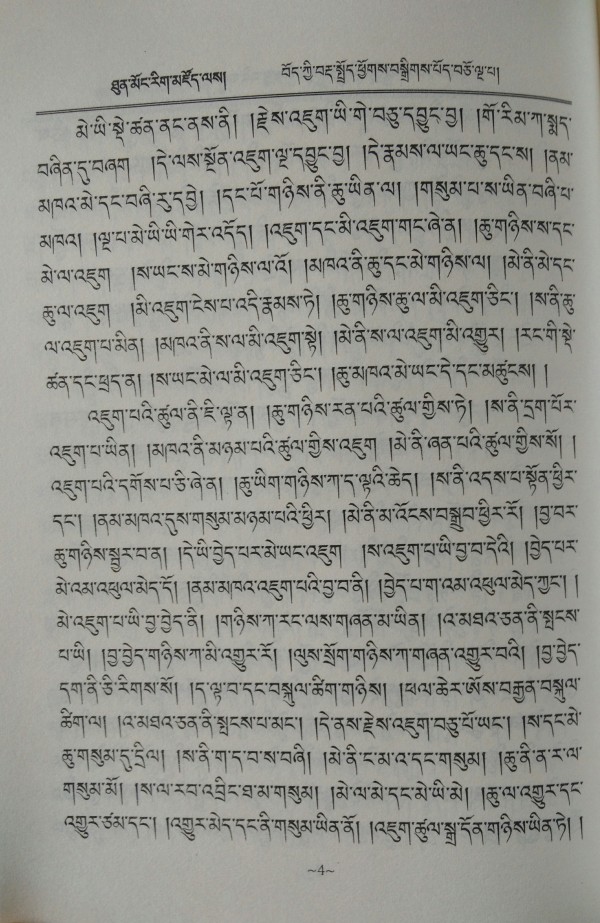 ཐུན་མོང་རིག་མཛོད་ལས། བོད་ཀྱི་བརྡ་སྤྲོད་ཕྱོགས་བསྒྲིགས་པོད་བཅོ་ལྔ་པ།
མེ་ཡི་སྡེ་ཚན་ནང་ནས་ནི། །རྗེས་འཇུག་ཡི་གེ་བཅུ་དབྱུང་བྱ། །གོ་རིམ་ཀ་སྨད་
བཞིན་དུ་བཞག །དེ་ལས་སྔོན་འཇུག་ལྔ་དབྱུང་བྱ། །དེ་རྣམས་ལ་ཡང་ཆུ་དང་ས། །ནམ་
མཁའ་མེ་དང་བཞི་རུ་དབྱེ། །དང་པོ་གཉིས་ནི་ཆུ་ཡིན་ལ། །གསུམ་པ་ས་ཡིན་བཞི་པ་
མཁའ། །ལྔ་པ་མེ་ཡི་ཡི་གེར་འདོད། །འཇུག་དང་མི་འཇུག་གང་ཞེ་ན། །ཆུ་གཉིས་ས་དང་
མེ་ལ་འཇུག །ས་ཡང་ས་མེ་གཉིས་ལ་འོ། །མཁའ་ནི་ཆུ་དང་མེ་གཉིས་ལ། །མེ་ནི་མེ་དང་
ཆུ་ལ་འཇུག །མི་འཇུག་ངེས་པ་འདི་རྣམས་ཏེ། །ཆུ་གཉིས་ཆུ་ལ་མི་འཇུག་ཅིང་། །ས་ནི་ཆུ་
ལ་འཇུག་པ་མིན། །མཁའ་ནི་ས་ལ་མི་འཇུག་སྟེ། །མེ་ནི་ས་ལ་འཇུག་མི་འགྱུར། །རང་གི་སྡེ་
ཚན་དང་ཕྲད་ན། །ས་ཡང་མེ་ལ་མི་འཇུག་ཅིང་། །ཆུ་མཁའ་མེ་ཡང་དེ་དང་མཚུངས། །
འཇུག་པའི་ཚུལ་ནི་ཇི་ལྟ་ན། །ཆུ་གཉིས་རན་པའི་ཚུལ་གྱིས་ཏེ། །ས་ནི་དྲག་པོར་
འཇུག་པ་ཡིན། །མཁའ་ནི་མཉམ་པའི་ཚུལ་གྱིས་འཇུག །མེ་ནི་ཞན་པའི་ཚུལ་གྱིས་སོ། །
འཇུག་པའི་དགོས་པ་ཅི་ཞེ་ན། །ཆུ་ཡིག་གཉིས་ཀ་ད་ལྟའི་ཆེད། །ས་ནི་འདས་པ་སྟོན་ཕྱིར་
དང་། །ནམ་མཁའ་དུས་གསུམ་མཉམ་པའི་ཕྱིར། །མེ་ནི་མ་འོངས་བསྒྲུབ་ཕྱིར་རོ། །བྱ་བར་
ཆུ་གཉིས་སྦྱར་བ་ན། །དེ་ཡི་བྱེད་པར་མེ་ཡང་འཇུག །ས་འཇུག་པ་ཡི་བྱ་བ་དེའི། །བྱེད་པར་
མེ་འམ་འཕུལ་མེད་དོ། །ནམ་མཁའ་འཇུག་པའི་བྱ་བ་ནི། །བྱེད་པ་ག་འམ་འཕུལ་མེད་ཀྱང་། །
མེ་འཇུག་པ་ཡི་བྱ་བྱེད་ནི། །གཉིས་ཀ་རང་ལས་གཞན་མ་ཡིན། །འ་མཐའ་ཅན་ནི་སྤངས་
པ་ཡི། །བྱ་བྱེད་གཉིས་ཀ་མི་འགྱུར་རོ། །ལུས་སྲོག་གཉིས་ཀ་གཞན་འགྱུར་བའི། །བྱ་བྱེད་
དག་ནི་ཅི་རིགས་སོ། །ད་ལྟ་བ་དང་བསྐུལ་ཚིག་གཉིས། །ཕལ་ཆེར་ཨོས་བརྒྱན་བསྐུལ་
ཚིག་ལ། །འ་མཐའ་ཅན་ནི་སྤངས་པ་མང་། །དེ་ནས་རྗེས་འཇུག་བཅུ་པོ་ཡང་། །ས་དང་མེ་
ཆུ་གསུམ་དུ་དྲིལ། །ས་ནི་ག་ད་བ་ས་བཞི། །མེ་ནི་ང་མ་འ་དང་གསུམ། །ཆུ་ནི་ན་ར་ལ་
གསུམ་མོ། །ས་ལ་རབ་འབྲིང་ཐ་མ་གསུམ། །མེ་ལ་མེ་དང་མེ་ཡི་མེ། །ཆུ་ལ་འགྱུར་དང་
འགྱུར་ཙམ་དང་། །འགྱུར་མེད་དང་ནི་གསུམ་ཡིན་ནོ། །འཇུག་ཚུལ་སྒྲ་དོན་གཉིས་ཡིན་ཏེ། །
~4~